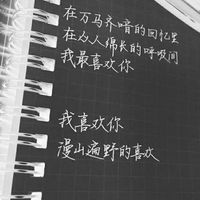 在万马齐喑的回忆里
在众人绵长的呼吸间
我最喜欢你
我喜欢你
漫山遍野的喜欢